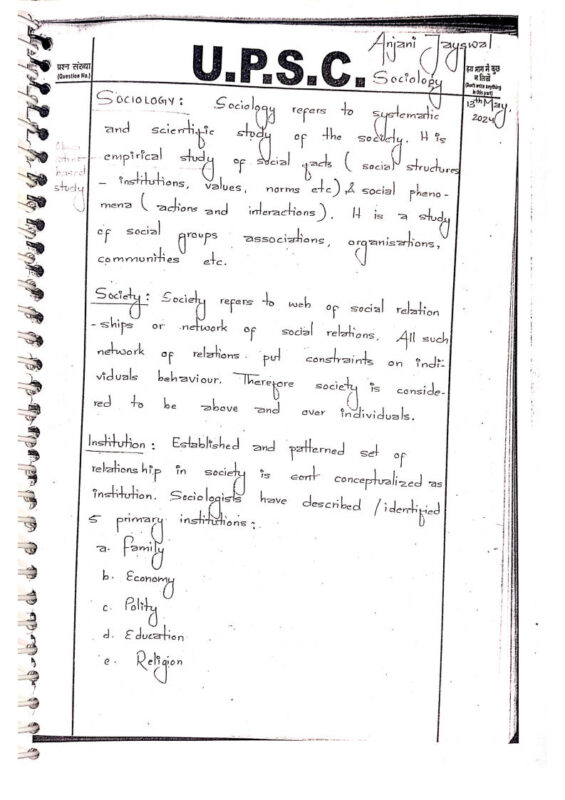 Anjani Jayswal
प्रश्न संख्या
(Question No.)
U.P.S.C.
Sociology
इस भाग में कुछ
न लिखें
(Don't write anything
in this part)
13th May,
2024
SOCIOLOGY: Sociology refers to systematic
and scientific study of the society. It is
empirical study of social facts (social structures
- institutions, values, norms etc), & social pheno-
mena (actions and interactions). It is a study
of social groups associations, organisations,
communities etc.
based
study
Society: Society refers to web of social relation
-ships or network of social relations. All such
network of relations put constraints on indi-
viduals behaviour. Therefore society is conside-
red to be above and over individuals.
Institution: Established and patterned set of
relationship in society is conceptualized as
institution. Sociologists have described / identified
5 primary institutions:
a. Family
b. Economy
c. Polity
d. Education
e. Religion